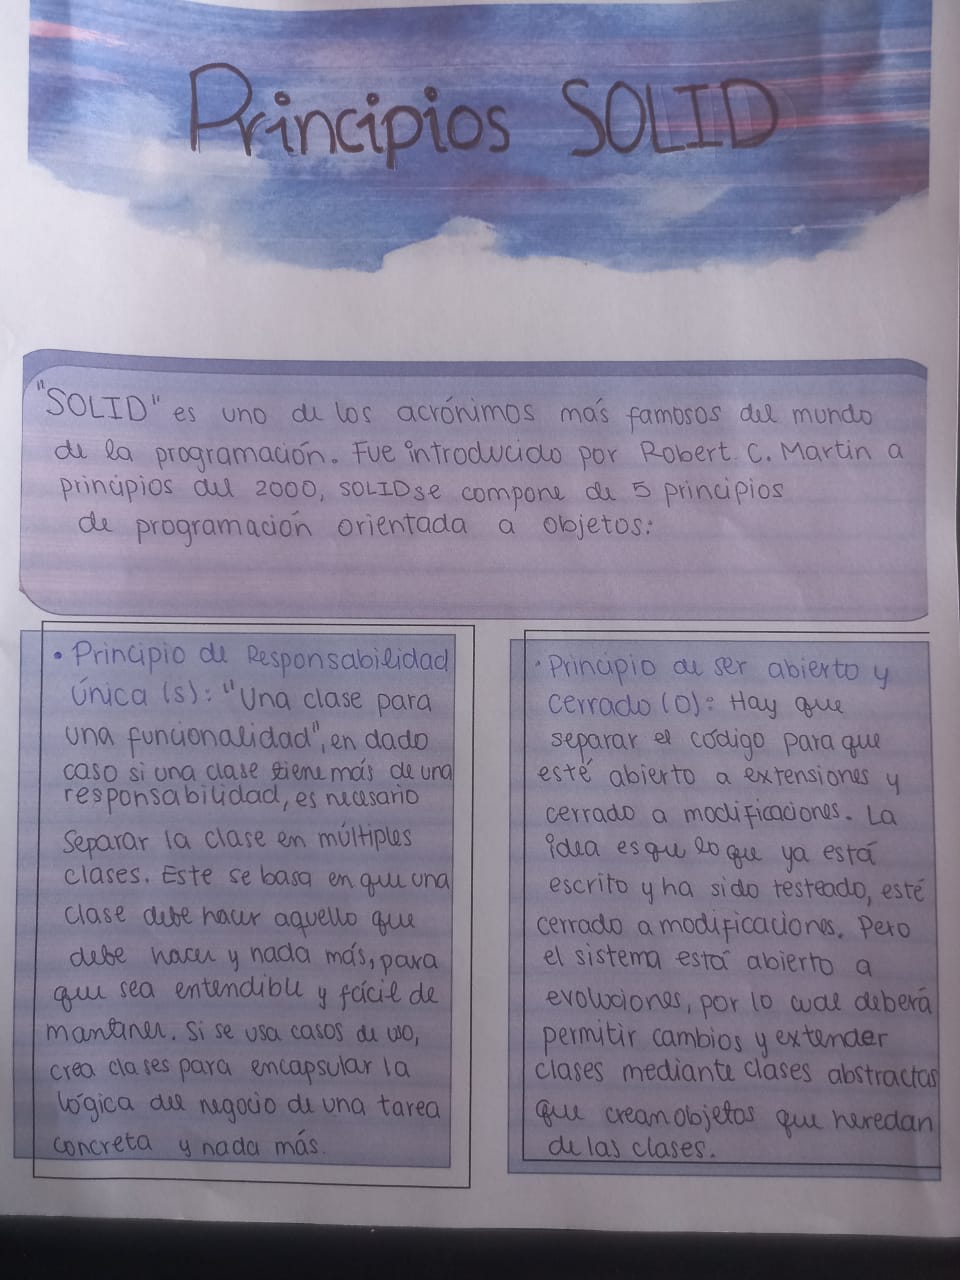 Principios SOLID
"SOLID" es uno de los acrónimos más famosos del mundo
de la programación. Fue introducido por Robert. C. Martin a
principios del 2000, SOLID se compone de 5 principios
de programación orientada a objetos:
• Principio de Responsabilidad
Única (s): "Una clase para
una funcionalidad", en dado
caso si una clase tiene más de una
responsabilidad, es necesario
separar la clase en múltiples
clases. Este se basa en que una
clase debe hacer aquello que
debe hacer y nada más, para
que sea entendible y fácil de
mantener. Si se usa casos de uso,
crea clases para encapsular la
lógica del negocio de una tarea
concreta y nada más.
• Principio de ser abierto y
cerrado (O): Hay que
separar el código para que
esté abierto a extensiones y
cerrado a modificaciones. La
idea es que lo que ya está
escrito y ha sido testeado, esté
cerrado a modificaciones. Pero
el sistema está abierto a
evoluciones, por lo cual deberá
permitir cambios y extender
clases mediante clases abstractas
que crean objetos que heredan
de las clases.